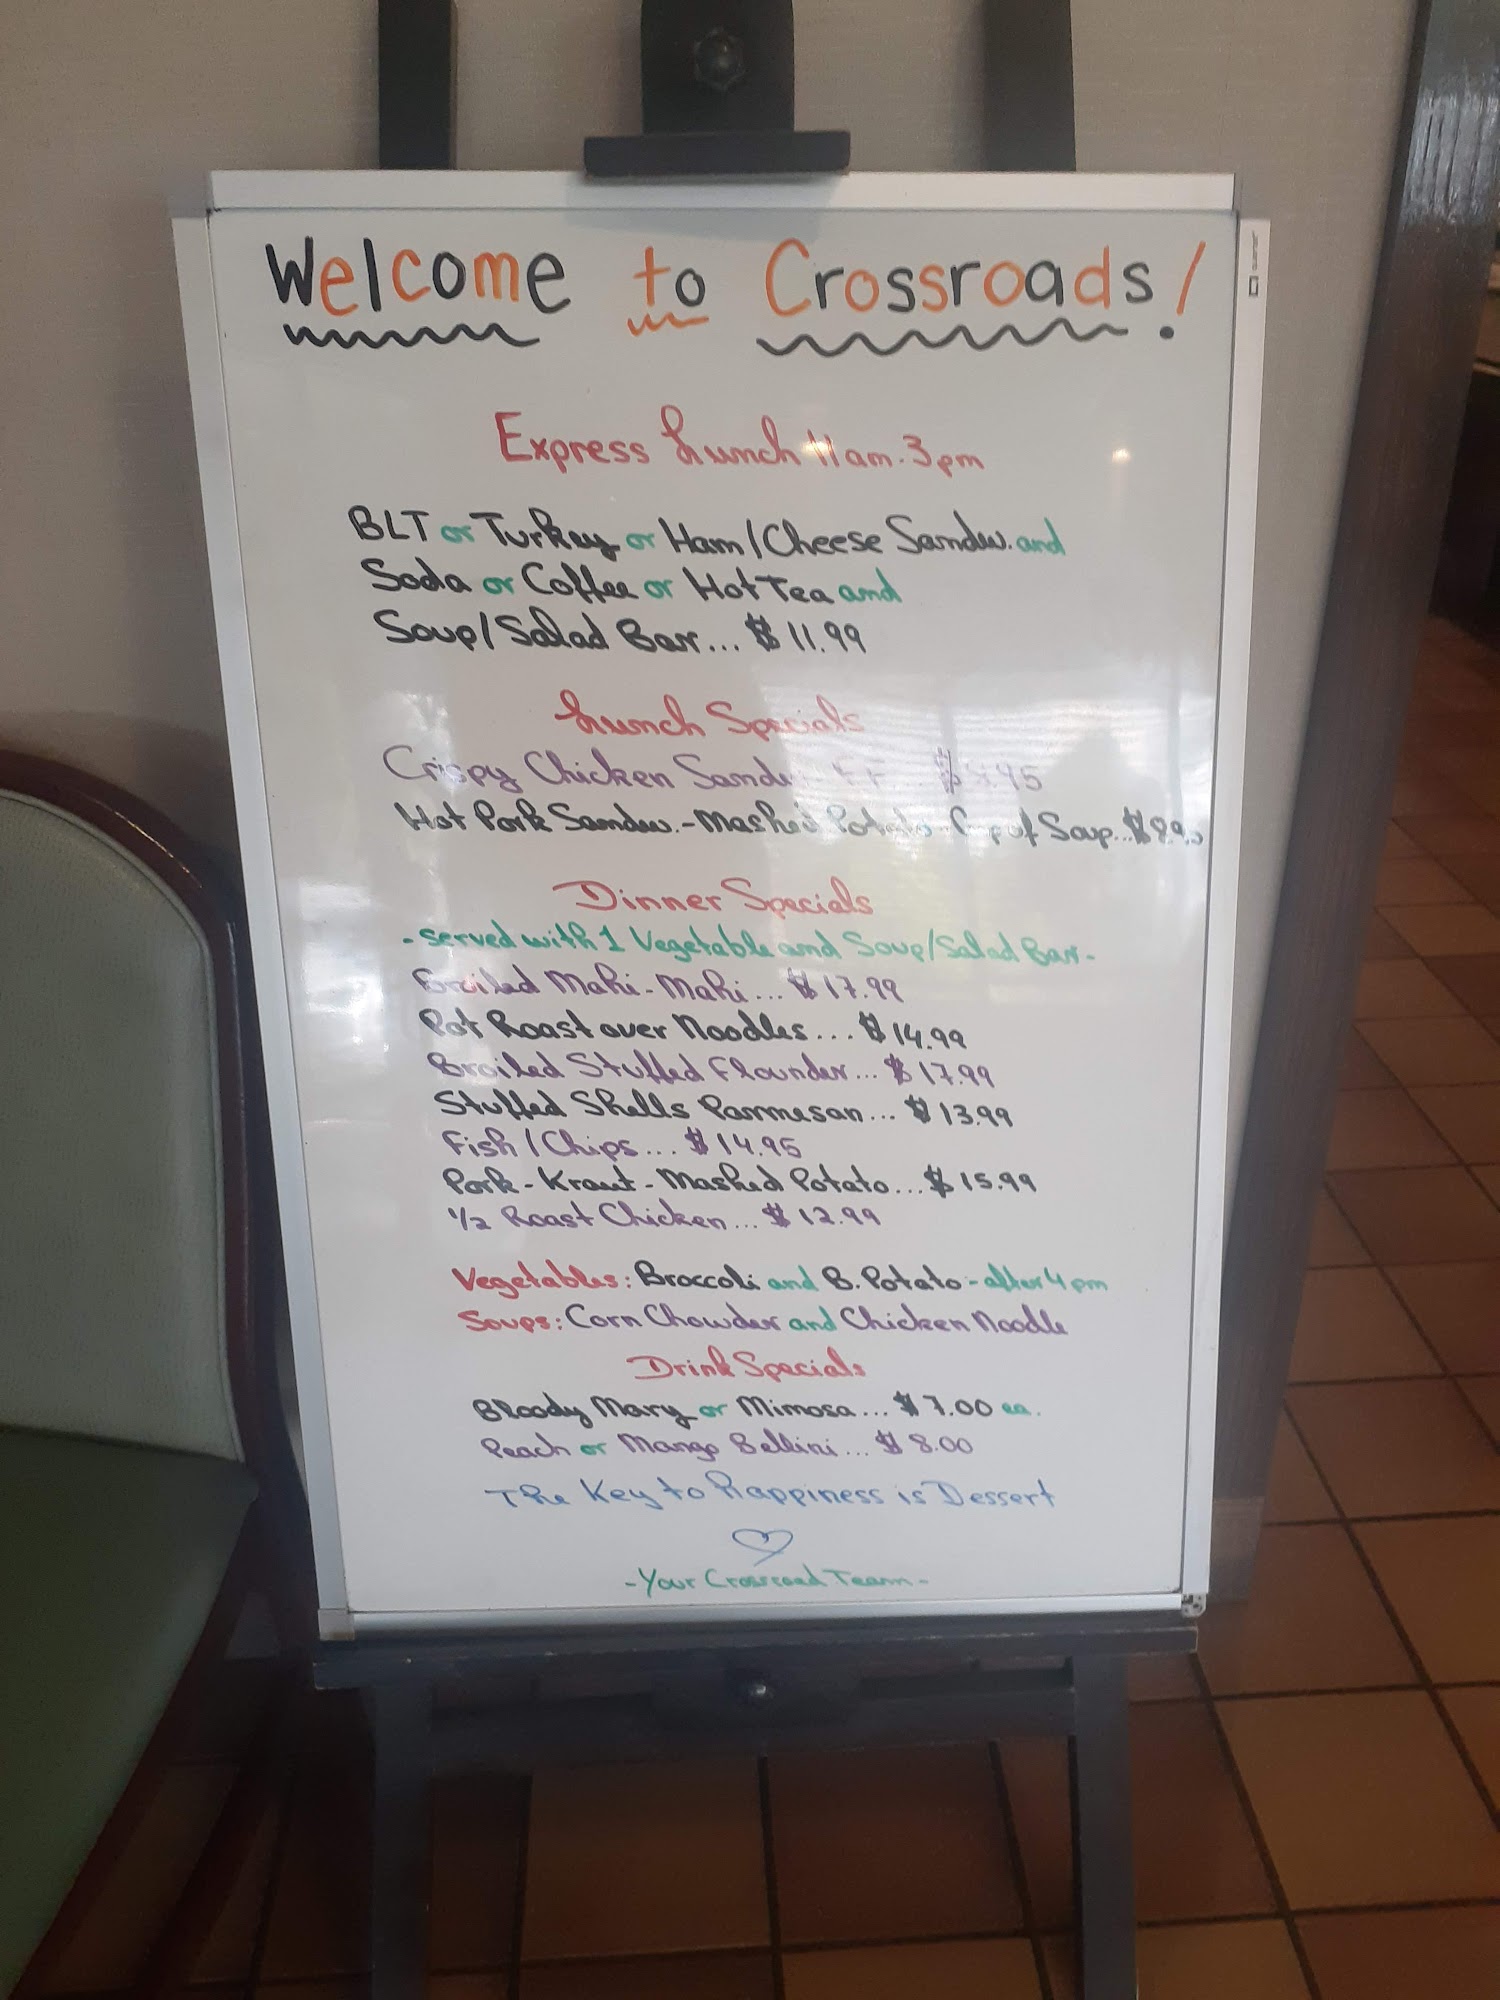 Welcome to Crossroads!
Express Lunch 11am-3pm
BLT or Turkey or Ham/Cheese Sandw. and
Soda or Coffee or Hot Tea and
Soup/Salad Bar... $11.99
Lunch Specials
Crispy Chicken
Hot Pork Sandw.-Mashed Potato-Cup of Soup...
Dinner Specials
-served with 1 Vegetable and Soup/Salad Bar-
Broiled Mahi-Mahi... $17.99
Pot Roast over Noodles... $14.99
Broiled Stuffed Flounder... $17.99
Stuffed Shells Parmesan... $13.99
Fish/Chips... $14.95
Pork-Kraut-Mashed Potato... $15.99
1/2 Roast Chicken... $12.99
Vegetables: Broccoli and B.Potato-after 4pm
Soups: Corn Chowder and Chicken Noodle
Drink Specials
Bloody Mary or Mimosa... $7.00 ea.
Peach or Mango Bellini... $8.00
The Key to happiness is Dessert
-Your Crossroad Team-